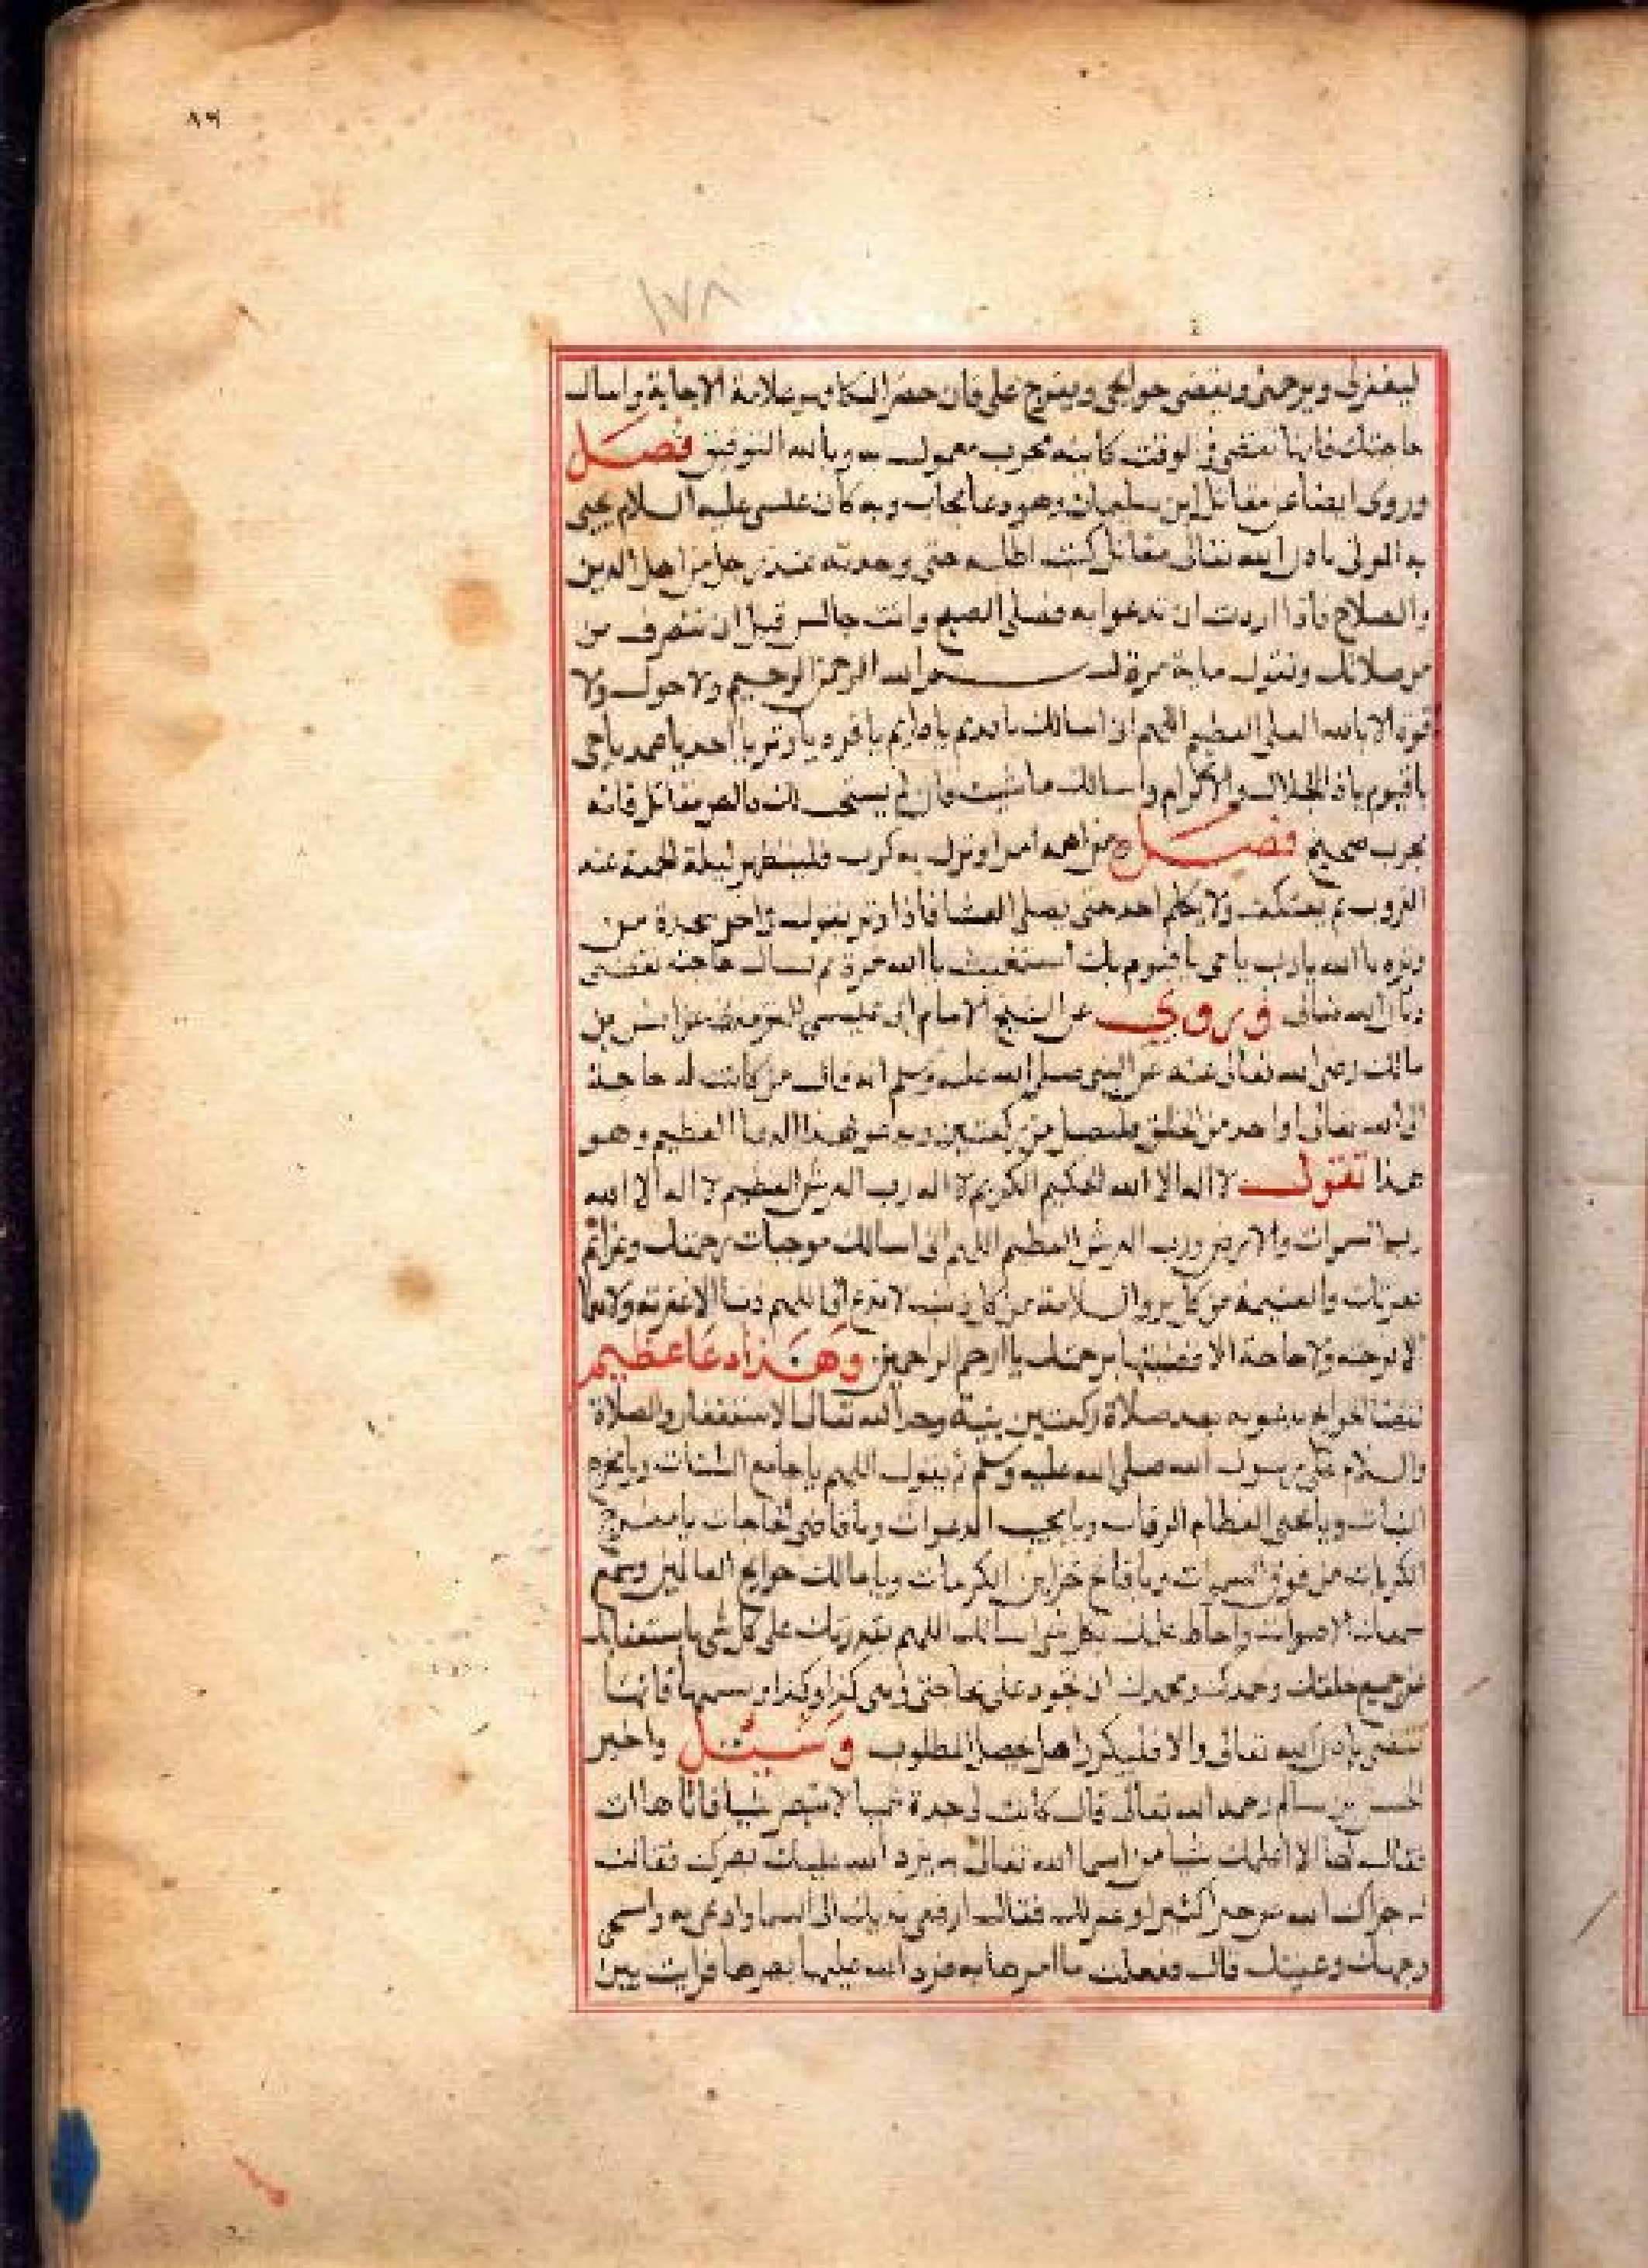 ٨٩
١٧٨
ليغفرلى ويرحمنى ويقضى حوايجى ويفرج على فان حضر البكا فهو علامة الاجابة واسال
حاجتك فانها تقضى فى الوقت كاينة مجرب معمول به وبالله التوفيق فصل
وروى ايضا عن مقاتل ابن سليمان وهو دعا يجاب وبه كان عيسى عليه السلام يحيى
به الموتى باذن الله تعالى مقاتل كنت اطلبه حتى وجدته عند رجل من اهل الدين
والصلاح فاذا اردت ان تدعوا به فصلى الصبح وانت جالس قبل ان تنصرف من
من صلاتك وتقول ماية مرة بسم الله الرحمن الرحيم ولا حول ولا
قوة الا بالله العلى العظيم اللهم انى اسالك يا قديم يا دايم يا فرد يا وتر يا احد يا صمد يا حى
يا قيوم يا ذا الجلال والاكرام واسالك ما شيت فان لم يستجب لك فالعن مقاتل فانه
مجرب صحيح فصل من اهمه امر او نزل به كرب فلينظر ليلة الجمعة عند
الغروب ثم يعتكف ولا يكلم احد حتى يصلى العشا فاذا وتر يقول فى اخر سجدة من
وتره يا الله يا رب يا حى يا قيوم بك استغيث يا الله مرة ثم يسال حاجته تقضى
باذن الله تعالى وروي عن الشيخ الامام ابى عيسى الترمذى عن انس بن
مالك رضى الله تعالى عنه عن النبى صلى الله عليه وسلم انه قال من كانت له حاجة
الى الله تعالى او احد من الخلق فليصل ركعتين ويدعو بهذا الدعا العظيم وهو
هذا تقول لا اله الا الله الحكيم الكريم لا اله رب العرش العظيم لا اله الا الله
رب السموات والارض ورب العرش العظيم اللهم انى اسالك موجبات رحمتك وعزائم
مغفرتك والغنيمة من كل بر والسلامة من كل ذنب لا تدع لنا اللهم ذنبا الا غفرته ولا هما
الا فرجته ولا حاجة الا قضيتها برحمتك يا ارحم الراحمين وهذا دعا عظيم
لقضا الحوايج يدعو به بعد صلاة ركعتين بنية وحمد الله تعالى الاستغفار والصلاة
والسلام على رسول الله صلى الله عليه وسلم ثم يقول اللهم يا جامع الشتات ويا مخرج
النبات ويا محيى العظام الرفات ويا مجيب الدعوات ويا قاضى الحاجات يا مفرج
الكربات من فوق السموات ويا فتاح خزاين الكرمات ويا مالك حوايج العالمين وسع
سمعك الاصوات واحاط علمك بكل شى اسالك اللهم بقدرتك على كل شى باستغنايك
عن جميع خلقك وحمدك ومجدك ان تجود على بحاجتى وهى كذا وكذا ويسميها فانها
تقضى باذن الله تعالى والا فليكررها حصل المطلوب وسئل واخبر
الحسن بن سالم رحمه الله تعالى قال كانت لى جدة عميا لا تبصر شيا فاتاها ات
فقال لها الا اعلمك شيا من اسما الله تعالى به يرد الله عليك بصرك فقالت
له جزاك الله خيرا كثيرا وغفر لك فقال ارفعى يديك الى السما وادعى به وامسحى
وجهك وعينيك قال ففعلت ما امرها به فرد الله عليها بصرها فرايت بين